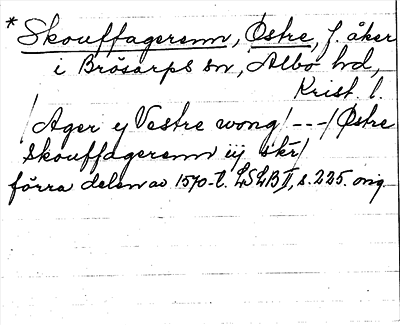 * Skouffagerenn, Østre, f. åker
i Brösarps sn, Albo hd,
Krist. l.
/Ager ij Vestre wong/ - - - /Østre
Skouffagerenn iij skr/
förra delen av 1570-t. LSLB II, s. 225. orig.